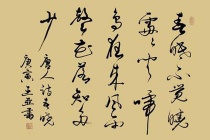 春眠不覺曉
處處聞啼
鳥夜來風雨
聲花落知多
少
唐人詩春曉
庚寅